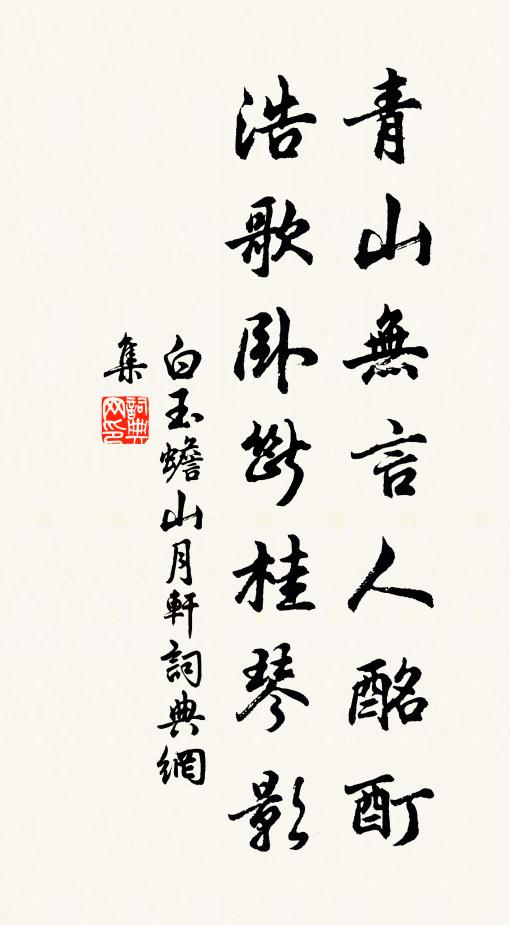 青山無言人酩酊
浩歌卧斷桂琴影
白玉蟾山月軒詞典網
集
詞典
网印